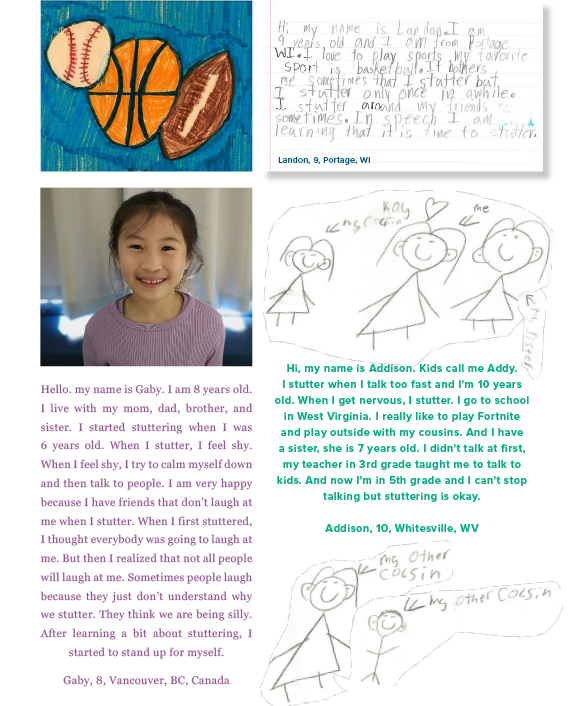 Hi, my name is Landon. I am
9 years old and I am from Portage
WI. I love to play sports my favorite
sport is basketball. It bothers
me sometimes that I statter but
I stutter only once in awhile.
I stutter around my friends
sometimes. In speech I am
learning that it is fine to stutter.
Landon, 9, Portage, WI
Hello. my name is Gaby. I am 8 years old.
I live with my mom, dad, brother, and
sister. I started stuttering when I was
6 years old. When I stutter, I feel shy.
When I feel shy, I try to calm myself down
and then talk to people. I am very happy
because I have friends that don't laugh at
me when I stutter. When I first stuttered,
I thought everybody was going to laugh at
me. But then I realized that not all people
will laugh at me. Sometimes people laugh
because they just don't understand why
we stutter. They think we are being silly.
After learning a bit about stuttering, I
started to stand up for myself.
Gaby, 8, Vancouver, BC, Canada
my Cocsin
Kay
me
my sister
Hi, my name is Addison. Kids call me Addy.
I stutter when I talk too fast and I'm 10 years
old. When I get nervous, I stutter. I go to school
in West Virginia. I really like to play Fortnite
and play outside with my cousins. And I have
a sister, she is 7 years old. I didn't talk at first,
my teacher in 3rd grade taught me to talk to
kids. And now I'm in 5th grade and I can't stop
talking but stuttering is okay.
Addison, 10, Whitesville, WV
my other
cocsin
my other cocsin